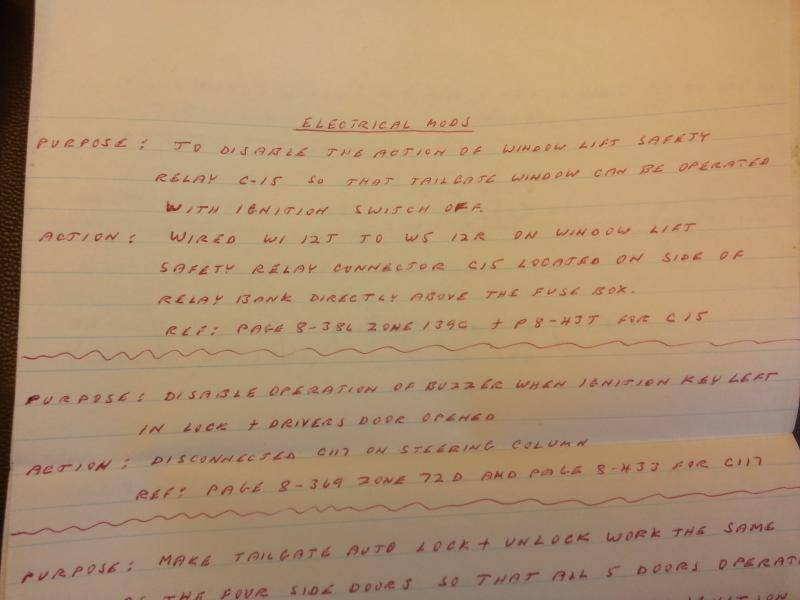 ELECTRICAL MODS
PURPOSE: TO DISABLE THE ACTION OF WINDOW LIFT SAFETY
RELAY C-15 SO THAT TAILGATE WINDOW CAN BE OPERATED
WITH IGNITION SWITCH OFF.
ACTION: WIRED W1 12T TO W5 12R ON WINDOW LIFT
SAFETY RELAY CONNECTOR C15 LOCATED ON SIDE OF
RELAY BANK DIRECTLY ABOVE THE FUSE BOX.
REF: PAGE 8-386 ZONE 139C + P8-43T FOR C15
PURPOSE: DISABLE OPERATION OF BUZZER WHEN IGNITION KEY LEFT
IN LOCK + DRIVERS DOOR OPENED
ACTION: DISCONNECTED C117 ON STEERING COLUMN
REF: PAGE 8-369 ZONE 72D AND PAGE 8-433 FOR C117
PURPOSE: MAKE TAILGATE AUTO LOCK + UNLOCK WORK THE SAME
THE FOUR SIDE DOORS SO THAT ALL 5 DOORS OPERAT